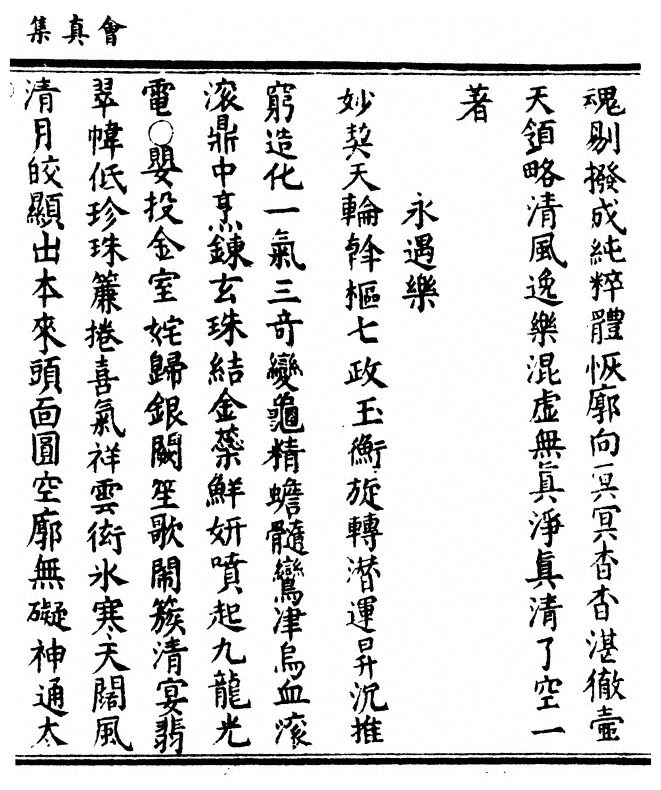 會真集
魂剔撥成純粹體恢廓向冥冥杳杳湛徹壼
天領略清風逸樂混虛無真淨真清了空一
著
永遇樂
妙契天輪斡樞七政玉衡旋轉潜運昇沉推
窮造化一氣三奇變龜精蟾髓鸞津烏血滚
滚鼎中烹鍊玄珠結金蘂鮮妍噴起九龍光
電○嬰投金室姹歸銀闕笙歌鬧簇清宴翡
翠幃低珍珠簾捲喜氣祥雲衒氷寒天闊風
清月皎顯出本來頭面圓空廓無礙神通太